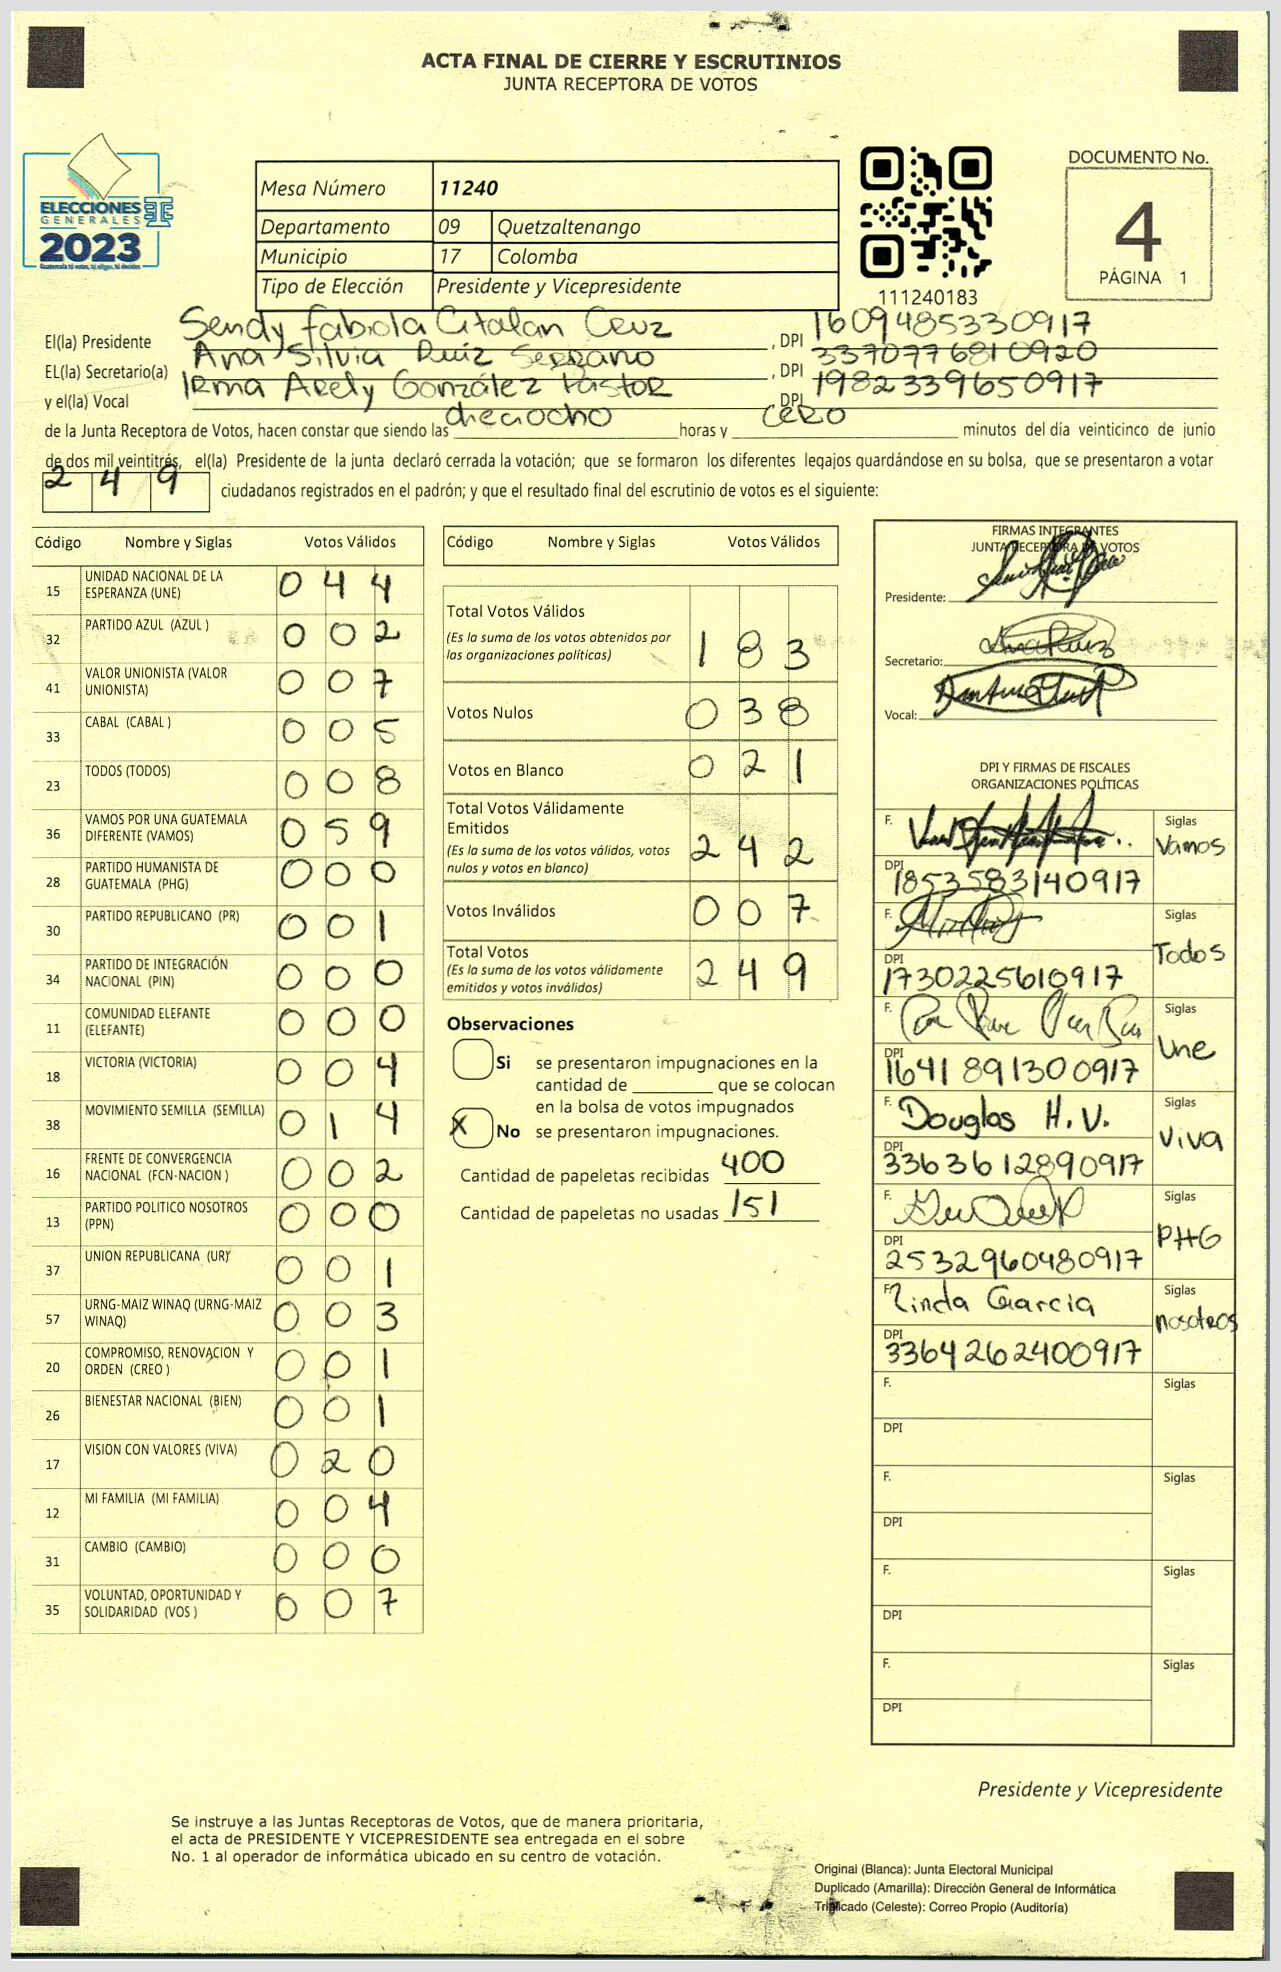 ACTA FINAL DE CIERRE Y ESCRUTINIOS
JUNTA RECEPTORA DE VOTOS
ELECCIONES
GENERALES
2023
Mesa Número 11240
Departamento 09 Quetzaltenango
Municipio 17 Colomba
Tipo de Elección Presidente y Vicepresidente
111240183
DOCUMENTO No.
4
PÁGINA 1
El(la) Presidente Sendy Fabiola Citalan Cruz, DPI 1609485330917
EL(la) Secretario(a) Ana Silvia Ruiz Serrano, DPI 3370776810920
y el(la) Vocal Irma Arely González Pastor DPI 1982339650917
de la Junta Receptora de Votos, hacen constar que siendo las dieciocho horas y cero minutos del día veinticinco de junio
de dos mil veintitrés, el(la) Presidente de la junta declaró cerrada la votación; que se formaron los diferentes legajos guardándose en su bolsa, que se presentaron a votar
249 ciudadanos registrados en el padrón; y que el resultado final del escrutinio de votos es el siguiente:
Código Nombre y Siglas Votos Válidos
15 UNIDAD NACIONAL DE LA ESPERANZA (UNE) 044
32 PARTIDO AZUL (AZUL ) 002
41 VALOR UNIONISTA (VALOR UNIONISTA) 007
33 CABAL (CABAL ) 005
23 TODOS (TODOS) 008
36 VAMOS POR UNA GUATEMALA DIFERENTE (VAMOS) 059
28 PARTIDO HUMANISTA DE GUATEMALA (PHG) 000
30 PARTIDO REPUBLICANO (PR) 001
34 PARTIDO DE INTEGRACIÓN NACIONAL (PIN) 000
11 COMUNIDAD ELEFANTE (ELEFANTE) 000
18 VICTORIA (VICTORIA) 004
38 MOVIMIENTO SEMILLA (SEMILLA) 014
16 FRENTE DE CONVERGENCIA NACIONAL (FCN-NACION ) 002
13 PARTIDO POLITICO NOSOTROS (PPN) 000
37 UNION REPUBLICANA (UR) 001
57 URNG-MAIZ WINAQ (URNG-MAIZ WINAQ) 003
20 COMPROMISO, RENOVACION Y ORDEN (CREO ) 001
26 BIENESTAR NACIONAL (BIEN) 001
17 VISION CON VALORES (VIVA) 020
12 MI FAMILIA (MI FAMILIA) 004
31 CAMBIO (CAMBIO) 000
35 VOLUNTAD, OPORTUNIDAD Y SOLIDARIDAD (VOS ) 007
Código Nombre y Siglas Votos Válidos
Total Votos Válidos
(Es la suma de los votos obtenidos por
las organizaciones políticas) 183
Votos Nulos 038
Votos en Blanco 021
Total Votos Válidamente
Emitidos
(Es la suma de los votos válidos, votos
nulos y votos en blanco) 242
Votos Inválidos 007
Total Votos
(Es la suma de los votos válidamente
emitidos y votos inválidos) 249
Observaciones
Si se presentaron impugnaciones en la
cantidad de ________ que se colocan
en la bolsa de votos impugnados
X No se presentaron impugnaciones.
Cantidad de papeletas recibidas 400
Cantidad de papeletas no usadas 151
FIRMAS INTEGRANTES
JUNTA RECEPTORA DE VOTOS
Presidente:
Secretario:
Vocal:
DPI Y FIRMAS DE FISCALES
ORGANIZACIONES POLÍTICAS
F. Siglas Vamos
DPI 1853583140917
F. Siglas Todos
DPI 1730225610917
F. Siglas Une
DPI 1641891300917
F. Douglas H.V. Siglas Viva
DPI 3363612890917
F. Siglas PHG
DPI 2532960480917
F. Linda Garcia Siglas nosotros
DPI 3364262400917
F. Siglas
DPI
F. Siglas
DPI
F. Siglas
DPI
F. Siglas
DPI
Presidente y Vicepresidente
Se instruye a las Juntas Receptoras de Votos, que de manera prioritaria,
el acta de PRESIDENTE Y VICEPRESIDENTE sea entregada en el sobre
No. 1 al operador de informática ubicado en su centro de votación.
Original (Blanca): Junta Electoral Municipal
Duplicado (Amarilla): Dirección General de Informática
Triplicado (Celeste): Correo Propio (Auditoría)